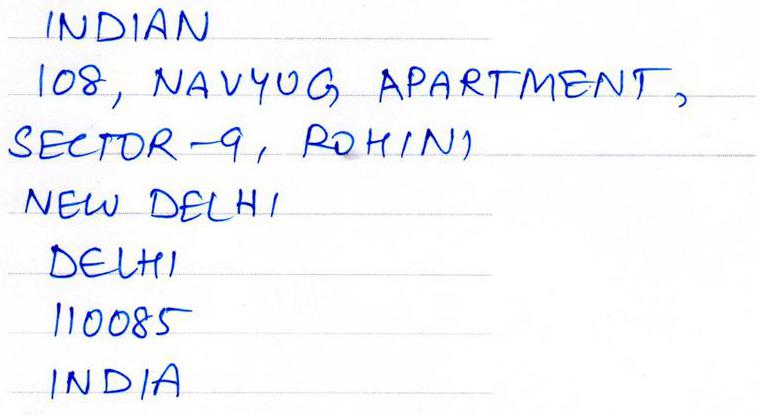 INDIAN
108, NAVYUG APARTMENT,
SECTOR-9, ROHINI
NEW DELHI
DELHI
110085
INDIA